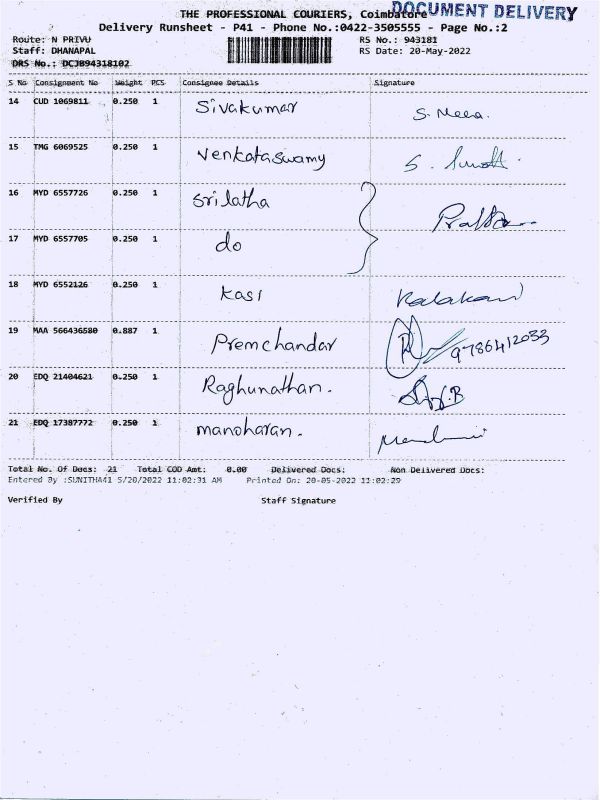 DOCUMENT DELIVERY
THE PROFESSIONAL COURIERS, Coimbatore
Delivery Runsheet - P41 - Phone No.:0422-3505555 - Page No.:2
Route: N PRIVU RS No.: 943181
Staff: DHANAPAL RS Date: 20-May-2022
DRS No.: DCJB94318102
S No Consignment No Weight PCS Consignee Details Signature
14 CUD 1069811 0.250 1 Sivakumar S. Meera.
15 TMG 6069525 0.250 1 Venkataswamy S.
16 MYD 6557726 0.250 1 Srilatha
17 MYD 6557705 0.250 1 do
18 MYD 6552126 0.250 1 Kasi
19 MAA 566436580 0.887 1 Premchandar 9786412033
20 EDQ 21404621 0.250 1 Raghunathan.
21 EDQ 17387772 0.250 1 manoharan.
Total No. Of Docs: 21 Total COD Amt: 0.00 Delivered Docs: Non Delivered Docs:
Entered By :SUNITHA41 5/20/2022 11:02:31 AM Printed On: 20-05-2022 11:02:29
Verified By Staff Signature